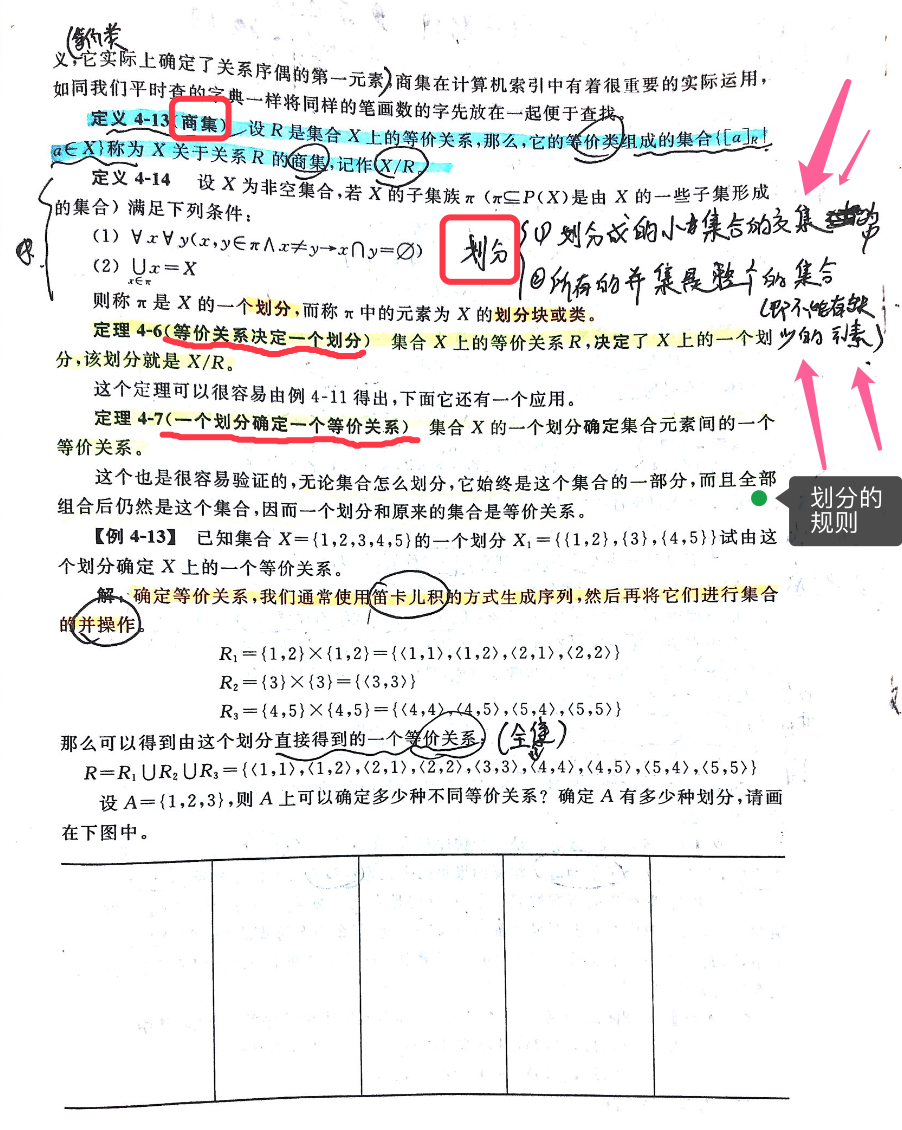 (等价类
义,它实际上确定了关系序偶的第一元素),商集在计算机索引中有着很重要的实际运用,
如同我们平时查的字典一样将同样的笔画数的字先放在一起便于查找。
定义 4-13(商集) 设 R 是集合 X 上的等价关系,那么,它的等价类组成的集合{[a]R|
a∈X}称为 X 关于关系 R 的商集,记作 X/R。
定义 4-14 设 X 为非空集合,若 X 的子集族 π (π⊆P(X)是由 X 的一些子集形成
的集合) 满足下列条件:
(1) ∀x∀y(x,y∈π∧x≠y→x∩y=∅)
(2) ⋃x=X
x∈π
划分
① 划分成的小集合的交集
② 所有的并集是整个的集合
(即不能有缺
少的元素)
则称 π 是 X 的一个划分,而称 π 中的元素为 X 的划分块或类。
定理 4-6(等价关系决定一个划分) 集合 X 上的等价关系 R,决定了 X 上的一个划
分,该划分就是 X/R。
这个定理可以很容易由例 4-11 得出,下面它还有一个应用。
定理 4-7(一个划分确定一个等价关系) 集合 X 的一个划分确定集合元素间的一个
等价关系。
这个也是很容易验证的,无论集合怎么划分,它始终是这个集合的一部分,而且全部
组合后仍然是这个集合,因而一个划分和原来的集合是等价关系。
划分的
规则
【例 4-13】 已知集合 X={1,2,3,4,5}的一个划分 X₁={{1,2},{3},{4,5}}试由这
个划分确定 X 上的一个等价关系。
解: 确定等价关系,我们通常使用笛卡儿积的方式生成序列,然后再将它们进行集合
的并操作。
R₁={1,2}×{1,2}={⟨1,1⟩,⟨1,2⟩,⟨2,1⟩,⟨2,2⟩}
R₂={3}×{3}={⟨3,3⟩}
R₃={4,5}×{4,5}={⟨4,4⟩,⟨4,5⟩,⟨5,4⟩,⟨5,5⟩}
那么可以得到由这个划分直接得到的一个等价关系,
R=R₁∪R₂∪R₃={⟨1,1⟩,⟨1,2⟩,⟨2,1⟩,⟨2,2⟩,⟨3,3⟩,⟨4,4⟩,⟨4,5⟩,⟨5,4⟩,⟨5,5⟩}
设 A={1,2,3},则 A 上可以确定多少种不同等价关系? 确定 A 有多少种划分,请画
在下图中。